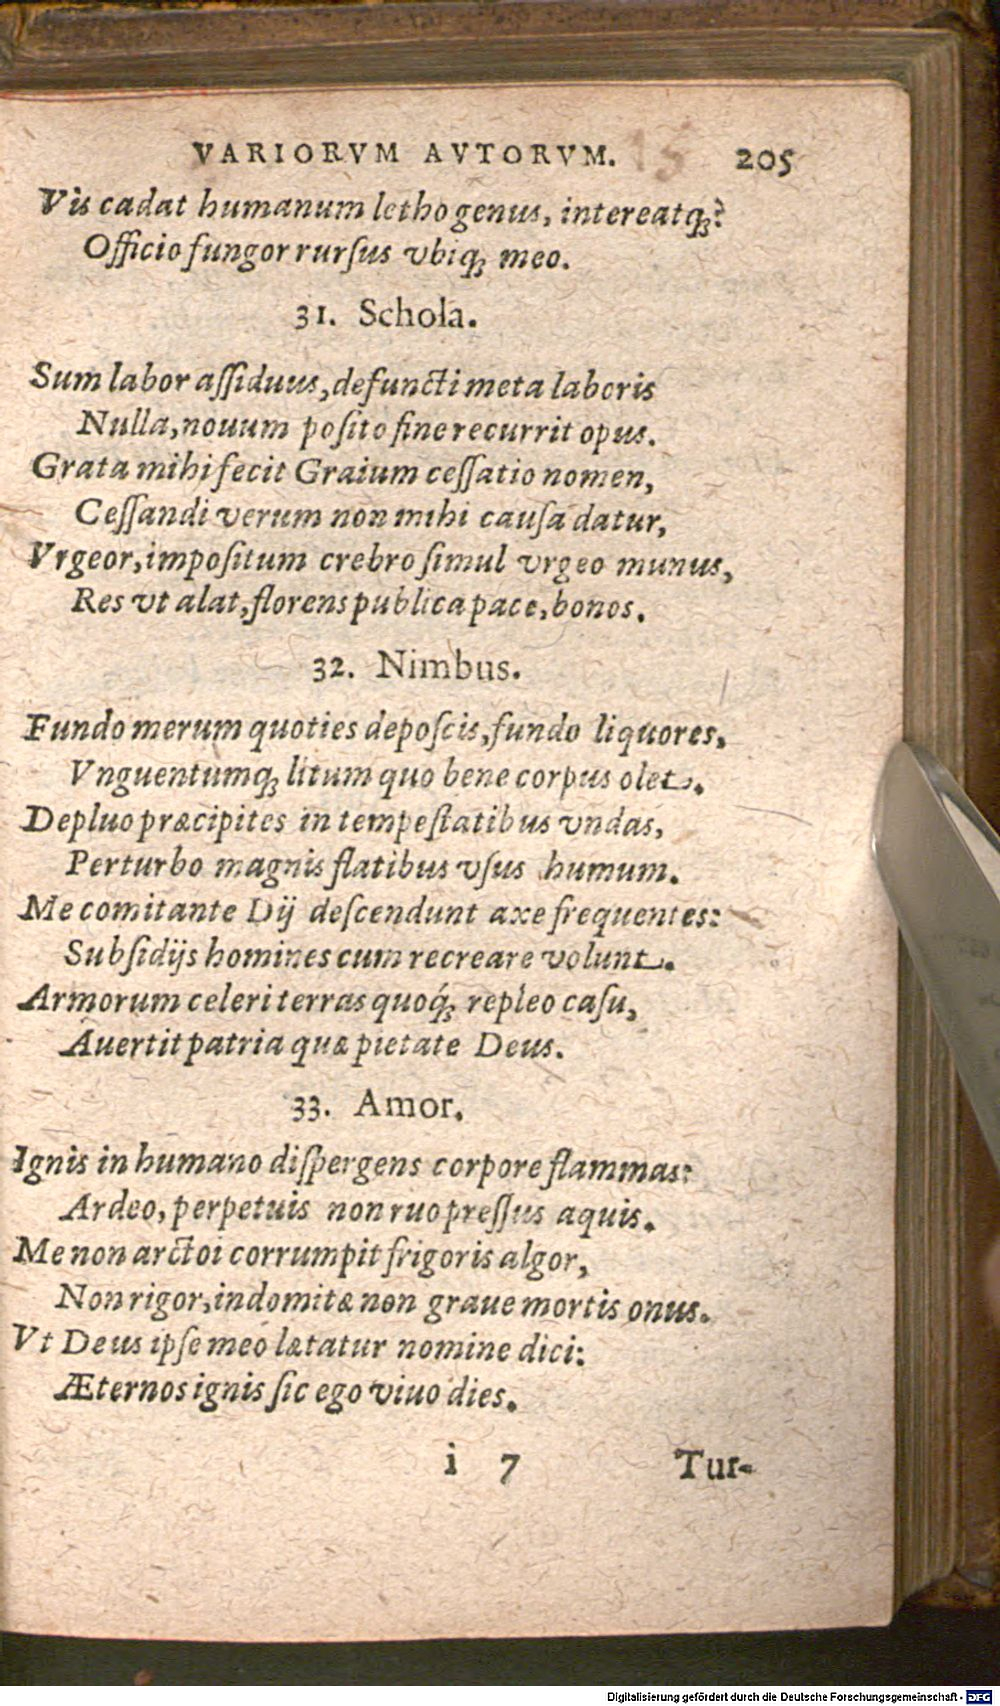 VARIORVM AVTORVM. 205
Vis cadat humanum letho genus, intereatq́ꝫ?
Officio fungor rurſus vbiqꝫ meo.
31. Schola.
Sum labor aſſiduus, defuncti meta laboris
Nulla, nouum poſito fine recurrit opus.
Grata mihi fecit Graium ceſſatio nomen,
Ceſſandi verum non mihi cauſa datur,
Vrgeor, impoſitum crebro ſimul vrgeo munus,
Res vt alat, florens publica pace, bonos.
32. Nimbus.
Fundo merum quoties depoſcis, fundo liquores,
Vnguentumqꝫ litum quo bene corpus olet.
Depluo præcipites in tempeſtatibus vndas,
Perturbo magnis flatibus vſus humum.
Me comitante Dij deſcendunt axe frequentes:
Subſidijs homines cum recreare volunt.
Armorum celeri terras quoq́ꝫ repleo caſu,
Auertit patria quæ pietate Deus.
33. Amor.
Ignis in humano diſpergens corpore flammas:
Ardeo, perpetuis non ruo preſſus aquis.
Me non arctoi corrumpit frigoris algor,
Non rigor, indomitæ non graue mortis onus.
Vt Deus ipſe meo lætatur nomine dici:
Æternos ignis ſic ego viuo dies.
i 7 Tur-
Digitalisierung gefördert durch die Deutsche Forschungsgemeinschaft - DFG